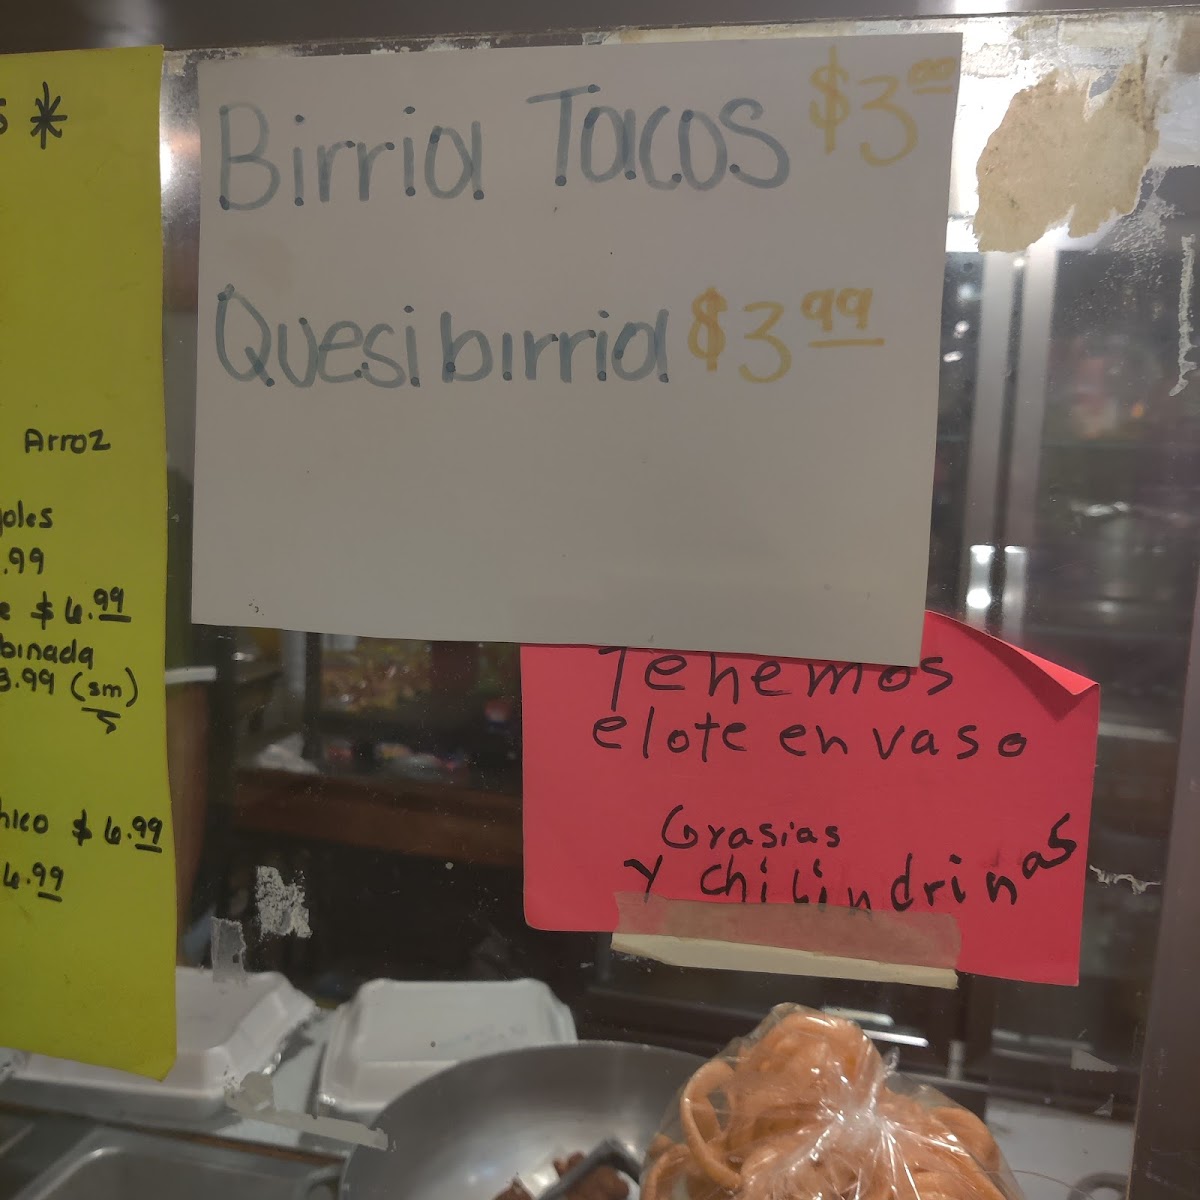 *
Arroz
.99
$6.99
3.99 (sm)
$6.99
6.99
Birria Tacos $3.00
Quesibirria $3.99
Tenemos
elote en vaso
Grasias
y chilindrinas